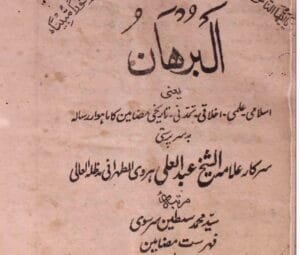 اَلبُرهَان
یعنی
اسلامی ۔ علمی ۔ اخلاقی ۔ تمدنی ۔ تاریخی مضامین کا ماہوار رسالہ
بہ سرپرستی
سرکار علامہ الشیخ عبد العلی ہروی الطہرانی مدظلہ العالی
مرتبہ
سید محمد سبطین سرسوی
فہرست مضامین